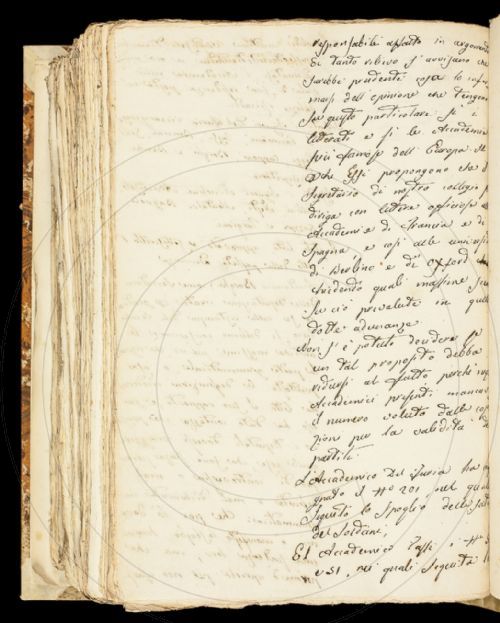 responsabile affatto in argomento
di tanto rilievo si avvisano che
sarebbe prudente cosa lo infor
marsi dell'opinione che tengono
su questo particolare si i
letterati e si le Accademie
più famose dell'Europa
che Essi propongono che il
Segretario di nostro collegio
diriga con lettera officiosa
Accademie di Francia e di
Spagna e così alle
di Berlino e di Oxford
chiedendo quali massime
su ciò prevalute in quelle
dotte adunanze
Non si è potuto decidere se
un tal proposito debba
ridursi al fatto perchè
Accademici presenti
il numero voluto dalle
zioni per la validità de
partiti.
L'Accademico Del Furia ha
gnato il N° 201, nel quale
seguitò lo Spoglio delle
del Soldani;
El Accademico i N°
e 51, nei quali seguita